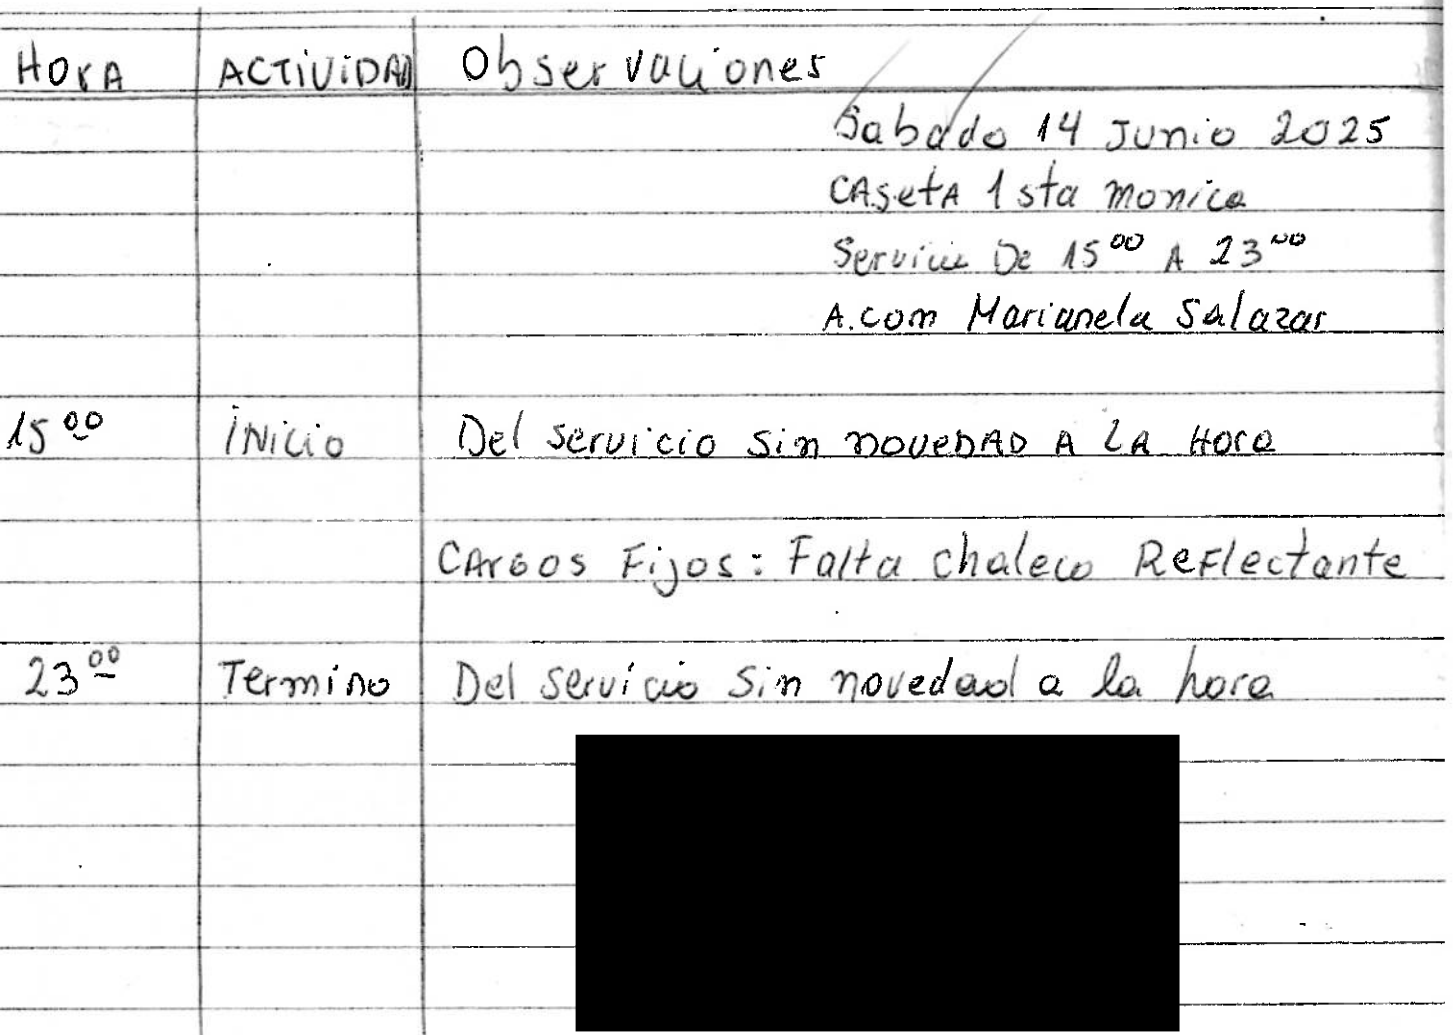 HORA ACTIVIDAD Observaciones
Sabado 14 Junio 2025
CASetA 1 sta monica
Servicio De 15 00 A 23 00
A.com Marianela Salazar
15 00 iNicio Del servicio sin noveDAD A LA Hora
CArGos Fijos: Falta chaleco ReFlectante
23 00 Termino Del servicio sin novedad a la hora